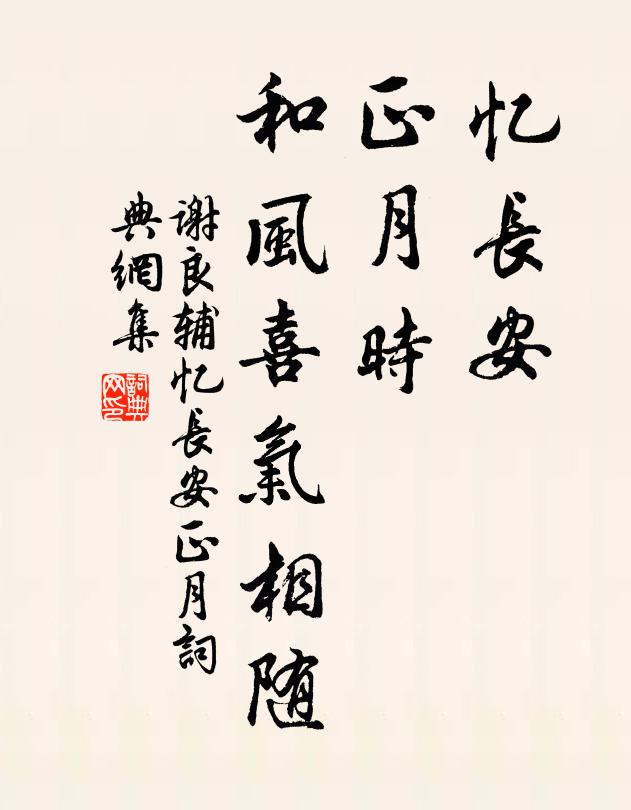 忆長安
正月時
和風喜氣相随
谢良辅忆長安正月詞
典網集
詞典网印